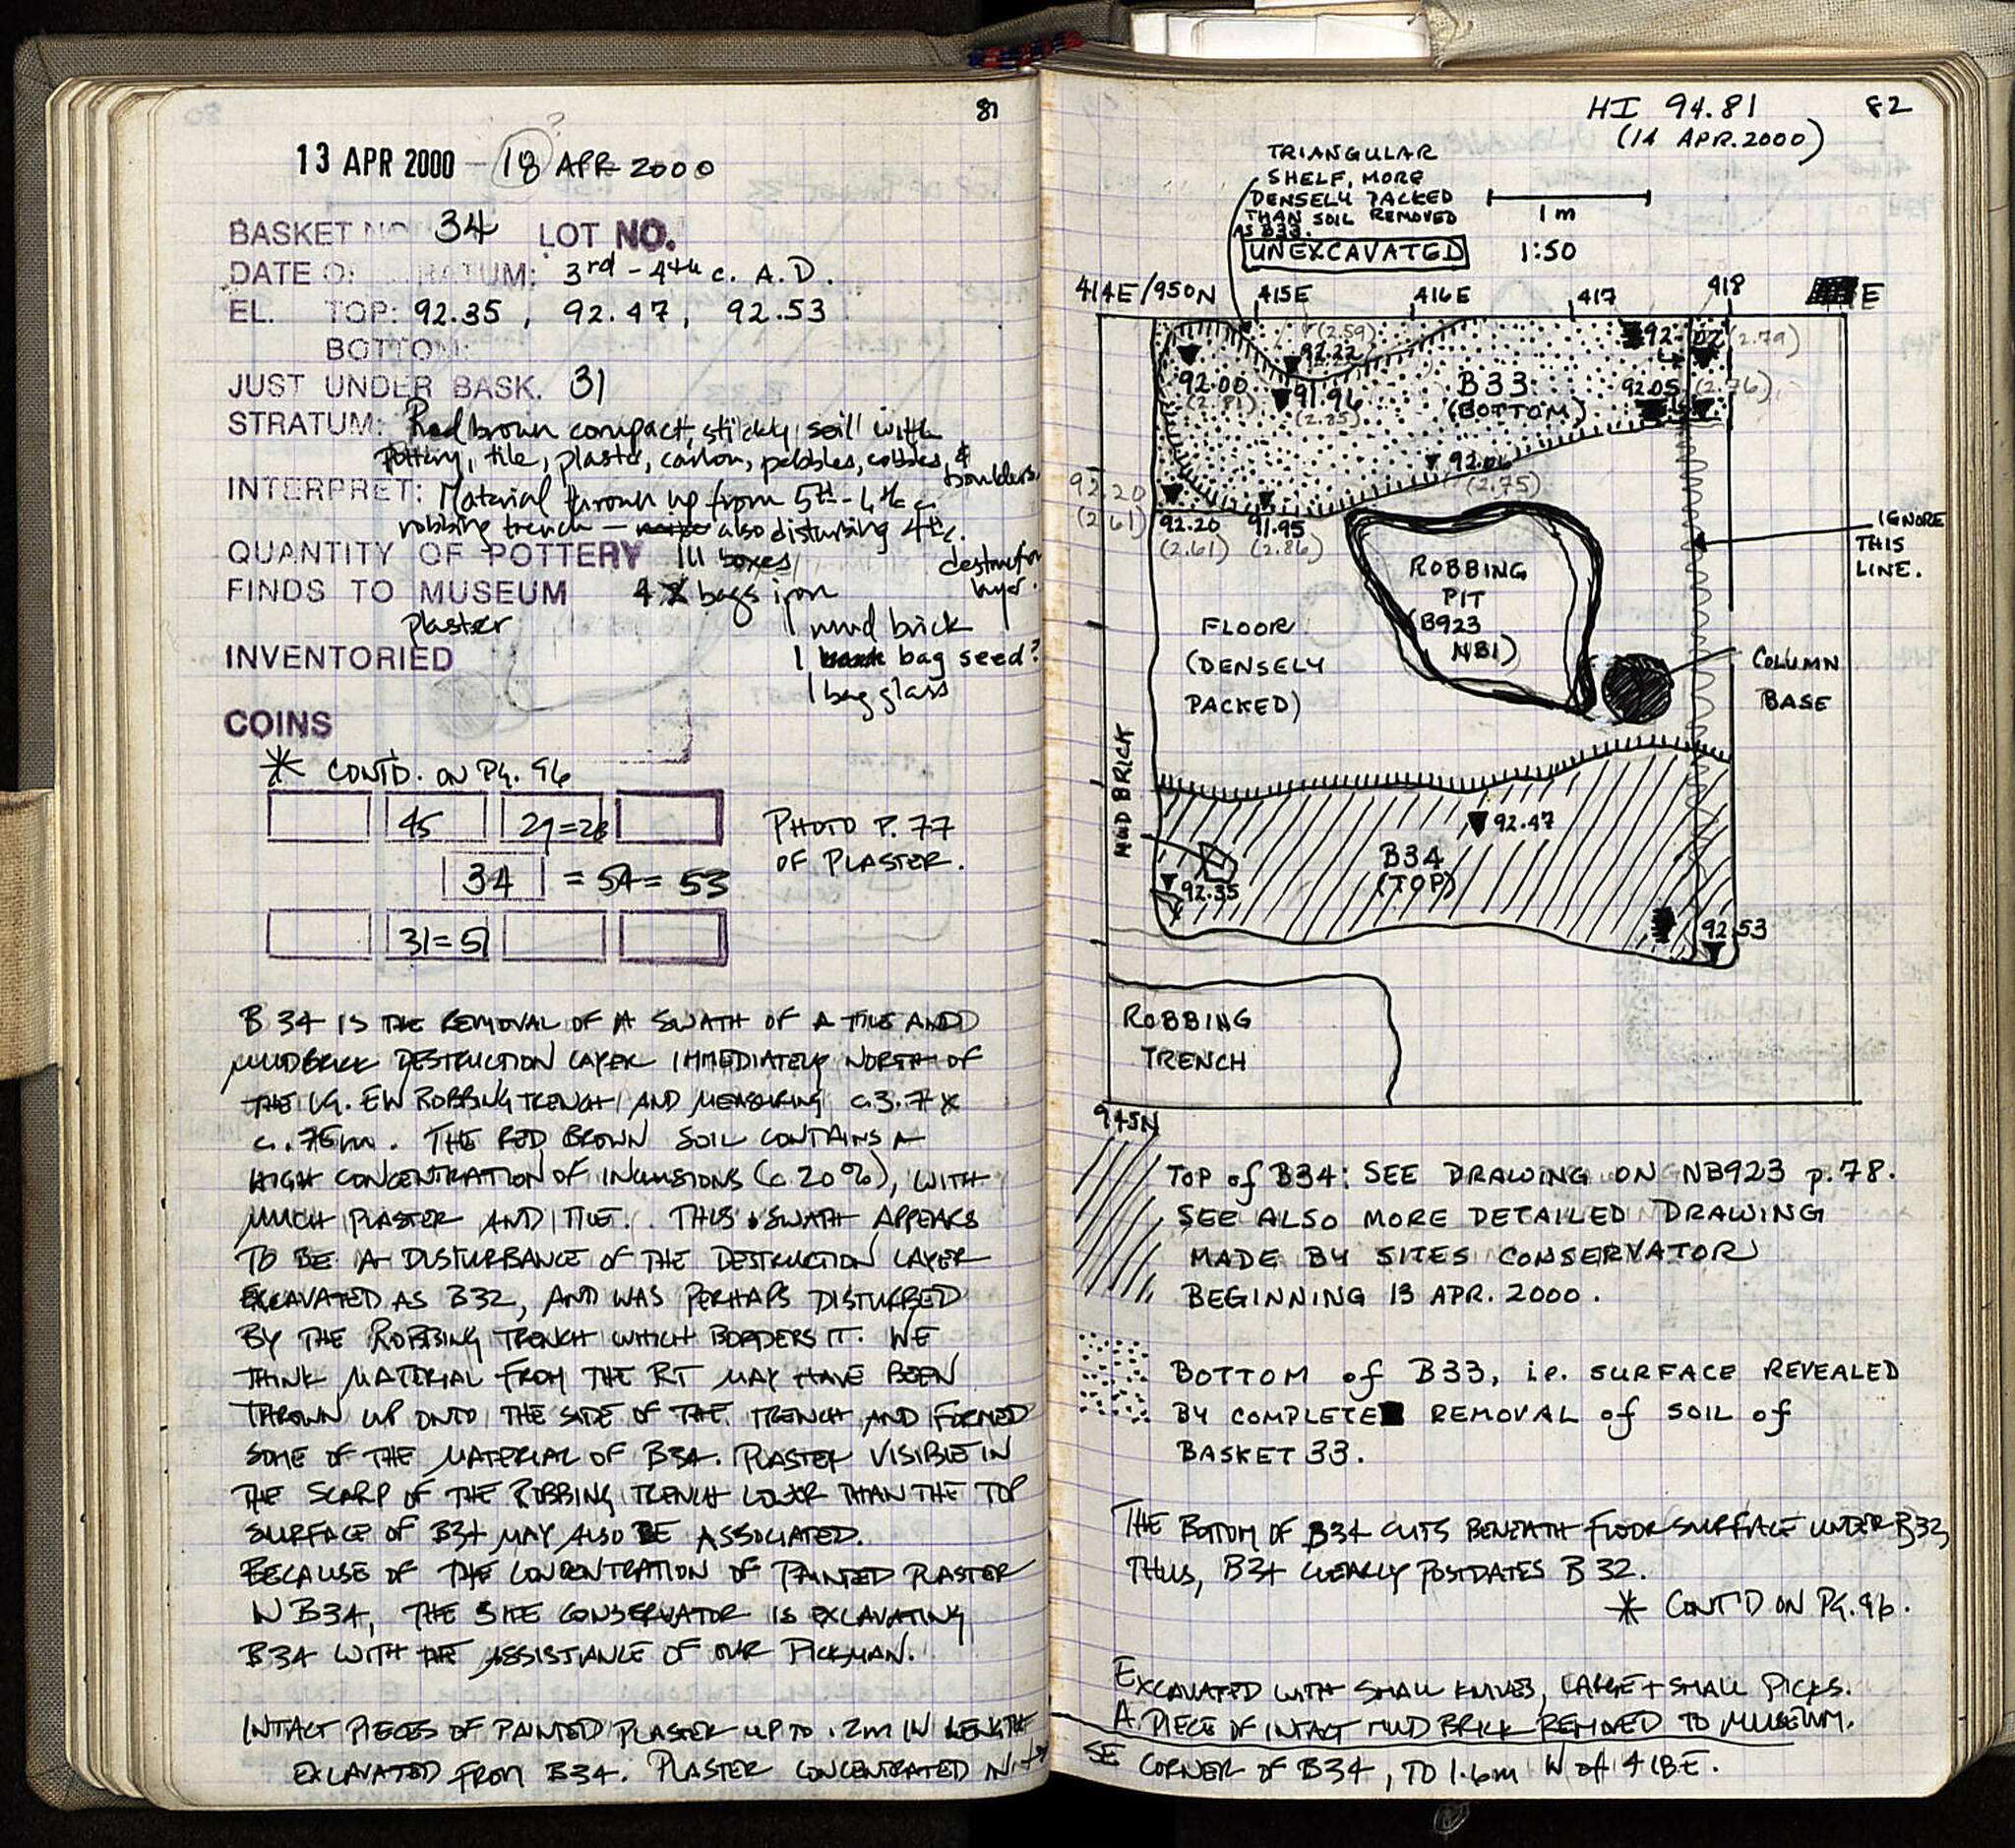 81
13 APR 2000 - 18 APR 2000
?
BASKET NO. 34 LOT NO.
DATE OF STRATUM: 3rd - 4th c. A.D.
EL. TOP: 92.35, 92.47, 92.53
BOTTOM:
JUST UNDER BASK. 31
STRATUM: Red brown compact, stickly soil with
Pottery, tile, plaster, carbon, pebbles, cobbles, &
boulders.
INTERPRET: Material thrown up from 5th - 6th c.
robbing trench — also disturbing 4th c.
destruction
layer.
QUANTITY OF POTTERY III boxes
FINDS TO MUSEUM 4 bags iron
plaster 1 mud brick
INVENTORIED 1 bag seed?
1 bag glass
COINS
* CONT'D. ON PG. 96
45 29=28
34 = 54 = 53
31=51
PHOTO P. 77
OF PLASTER.
B 34 IS THE REMOVAL OF A SWATH OF A TILE AND
MUDBRICK DESTRUCTION LAYER IMMEDIATELY NORTH OF
THE LG. EW ROBBING TRENCH AND MEASURING c.3.7 x
c. .75m. THE RED BROWN SOIL CONTAINS A
HIGH CONCENTRATION OF INCLUSIONS (c 20%), WITH
MUCH PLASTER AND TILE. THIS SWATH APPEARS
TO BE A DISTURBANCE OF THE DESTRUCTION LAYER
EXCAVATED AS B32, AND WAS PERHAPS DISTURBED
BY THE ROBBING TRENCH WHICH BORDERS IT. WE
THINK MATERIAL FROM THE RT MAY HAVE BEEN
THROWN UP ONTO THE SIDE OF THE TRENCH AND FORMED
SOME OF THE MATERIAL OF B34. PLASTER VISIBLE IN
THE SCARP OF THE ROBBING TRENCH LOWER THAN THE TOP
SURFACE OF B34 MAY ALSO BE ASSOCIATED.
BECAUSE OF THE CONCENTRATION OF PAINTED PLASTER
IN B34, THE SITE CONSERVATOR IS EXCAVATING
B34 WITH THE ASSISTANCE OF OUR PICKMAN.
INTACT PIECES OF PAINTED PLASTER UP TO .2m IN LENGTH
EXCAVATED FROM B34. PLASTER CONCENTRATED IN
HI 94.81 82
(14 APR.2000)
TRIANGULAR
SHELF, MORE
DENSELY PACKED
THAN SOIL REMOVED
AS B33.
UNEXCAVATED
1 m
1:50
414E/950N 415E 416E 417 418 E
(2.59)
92.22
92.02 (2.79)
92.00
(2.81)
91.96
(2.85)
B33
(BOTTOM)
92.05 (2.76)
92.06
(2.75)
92.20
(2.61)
92.20
(2.61)
91.95
(2.86)
IGNORE
THIS
LINE.
ROBBING
PIT
(B923
NB1)
FLOOR
(DENSELY
PACKED)
COLUMN
BASE
MUD BRICK
92.47
B34
(TOP)
92.35
92.53
ROBBING
TRENCH
945N
TOP of B34: SEE DRAWING ON NB923 p.78.
SEE ALSO MORE DETAILED DRAWING
MADE BY SITES CONSERVATOR
BEGINNING 13 APR. 2000.
BOTTOM of B33, i.e. SURFACE REVEALED
BY COMPLETE REMOVAL of SOIL of
BASKET 33.
THE BOTTOM OF B34 CUTS BENEATH FLOOR SURFACE UNDER B32,
THUS, B34 CLEARLY POSTDATES B 32.
* CONT'D ON PG. 96.
EXCAVATED WITH SMALL KNIVES, LARGE + SMALL PICKS.
A PIECE OF INTACT MUD BRICK REMOVED TO MUSEUM.
SE CORNER OF B34, TO 1.6m W of 418E.